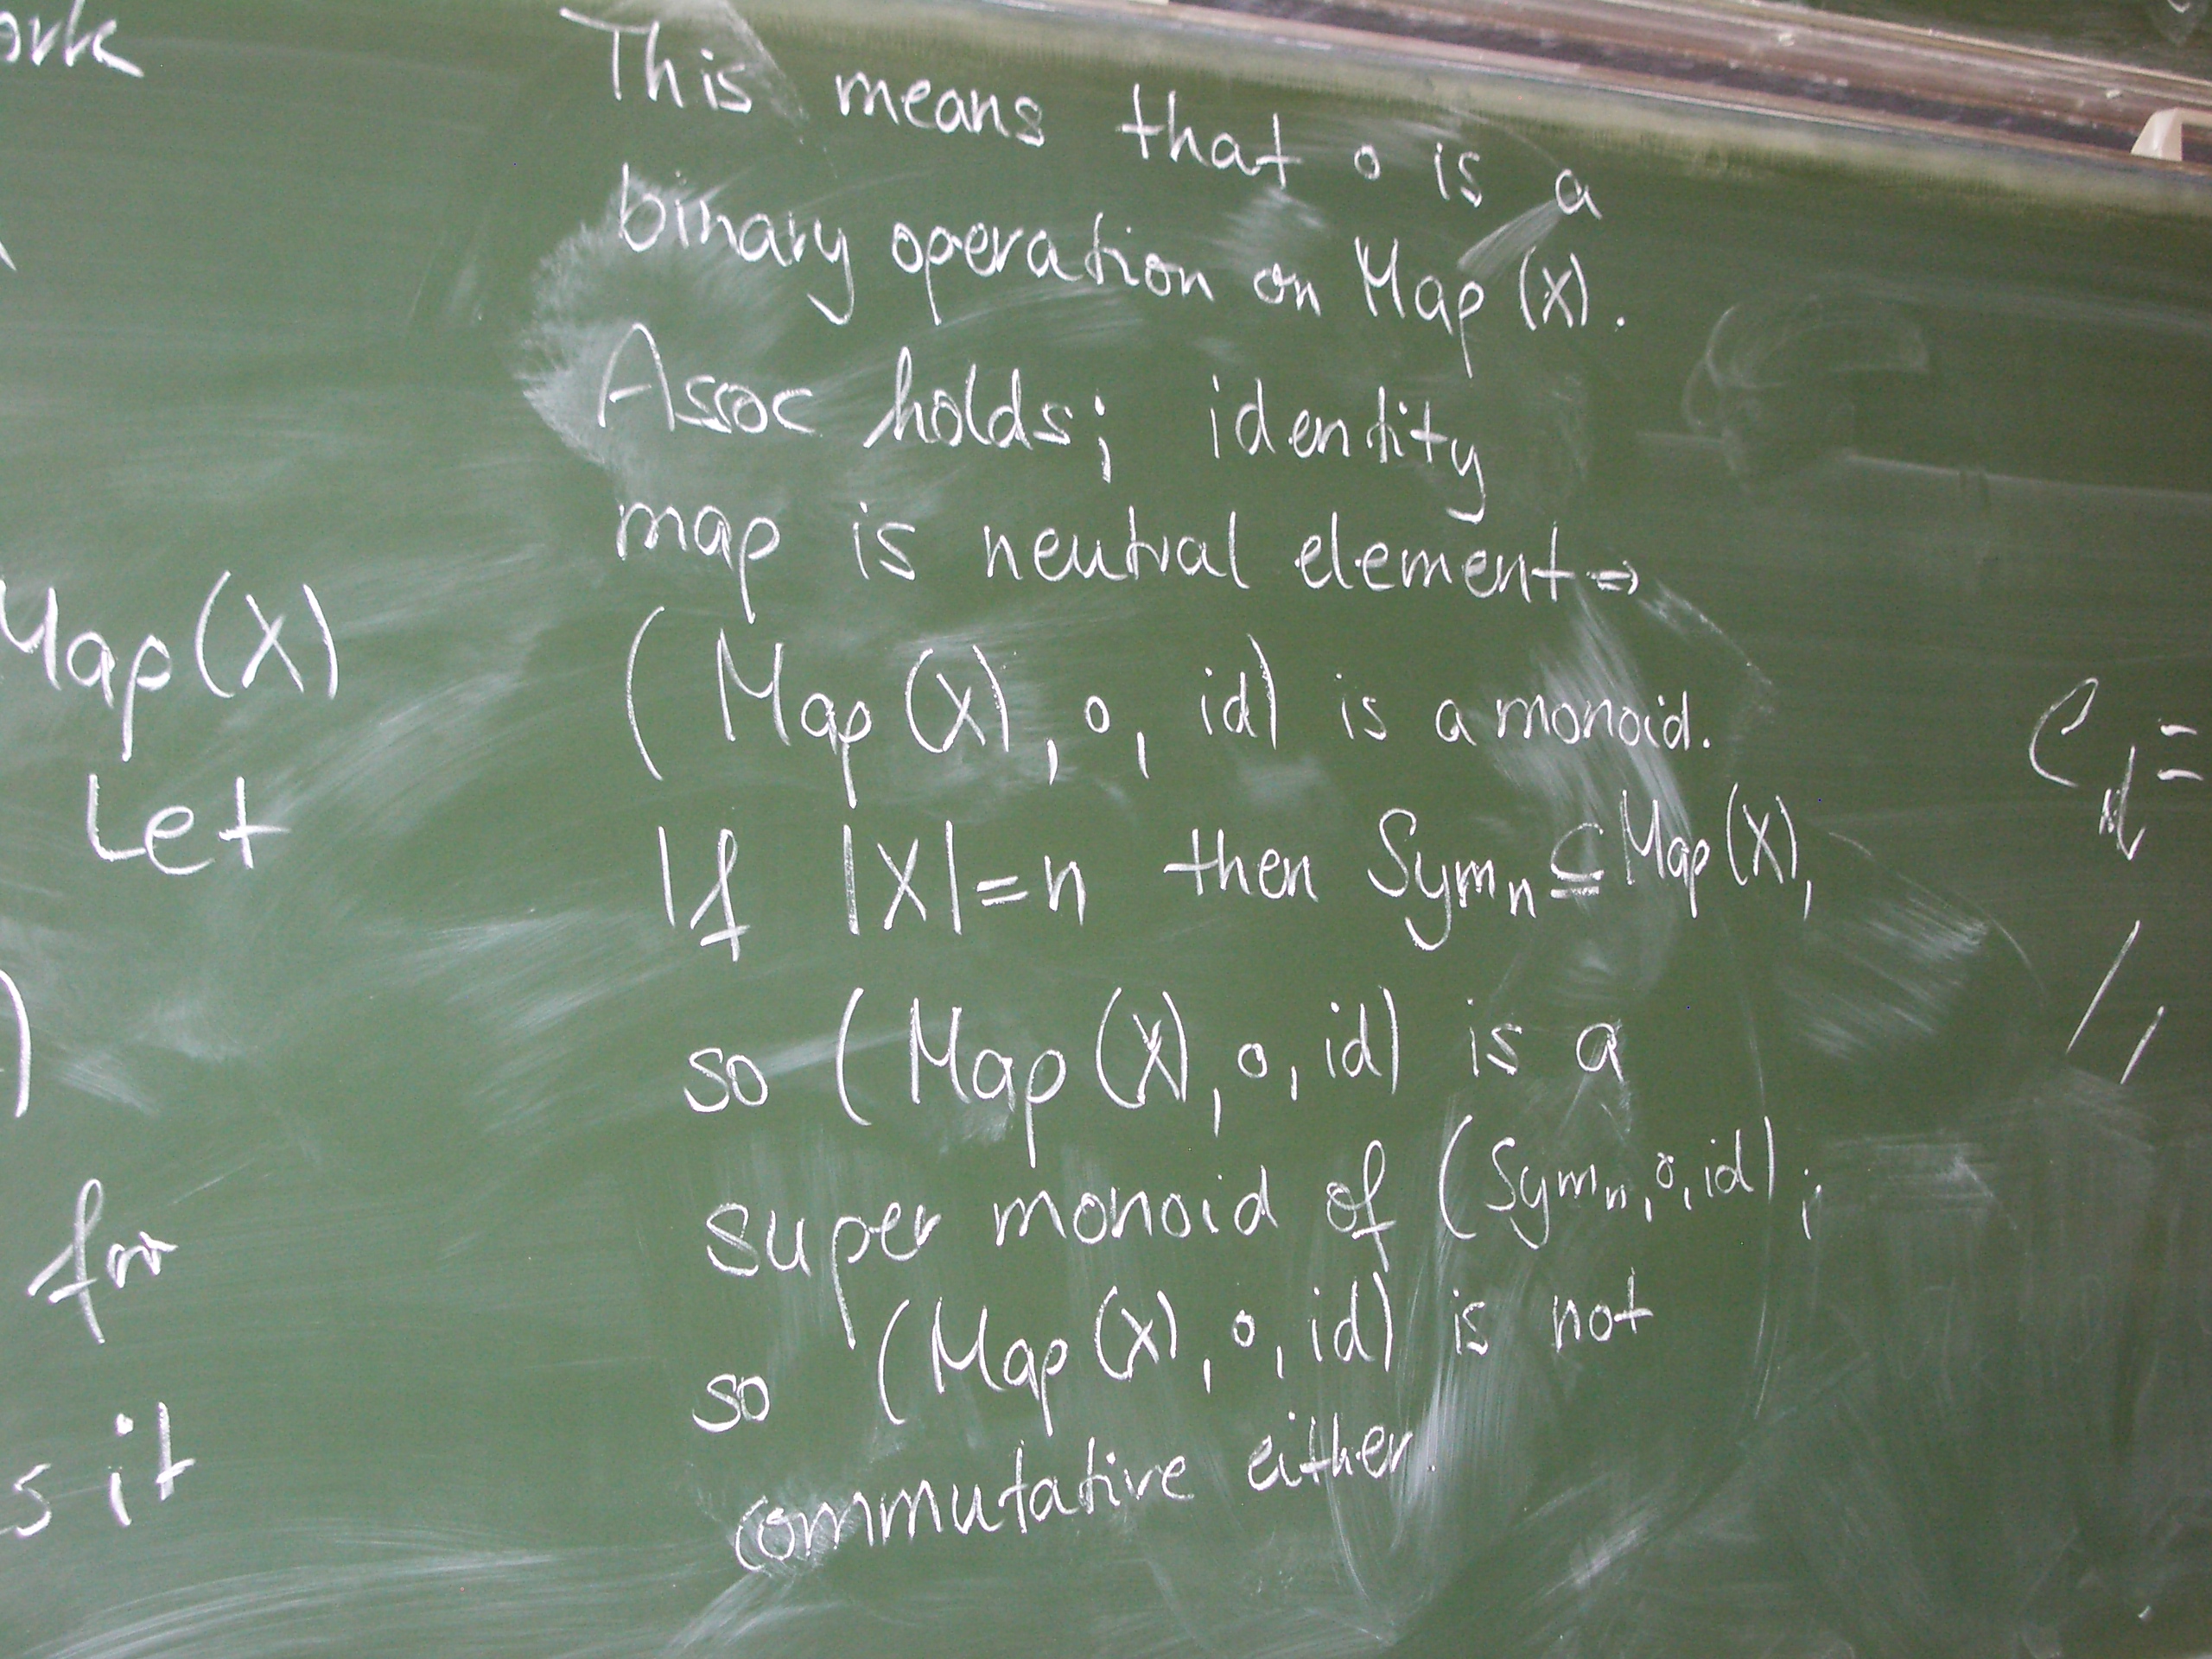 Map(X)
Let
for
s it
This means that ∘ is a
binary operation on Map (X).
Assoc holds; identity
map is neutral element ⇒
( Map (X), ∘, id) is a monoid.
If |X|=n then Symₙ ⊆ Map (X),
so ( Map (X), ∘, id) is a
super monoid of (Symₙ, ∘, id);
so (Map (X), ∘, id) is not
commutative either.